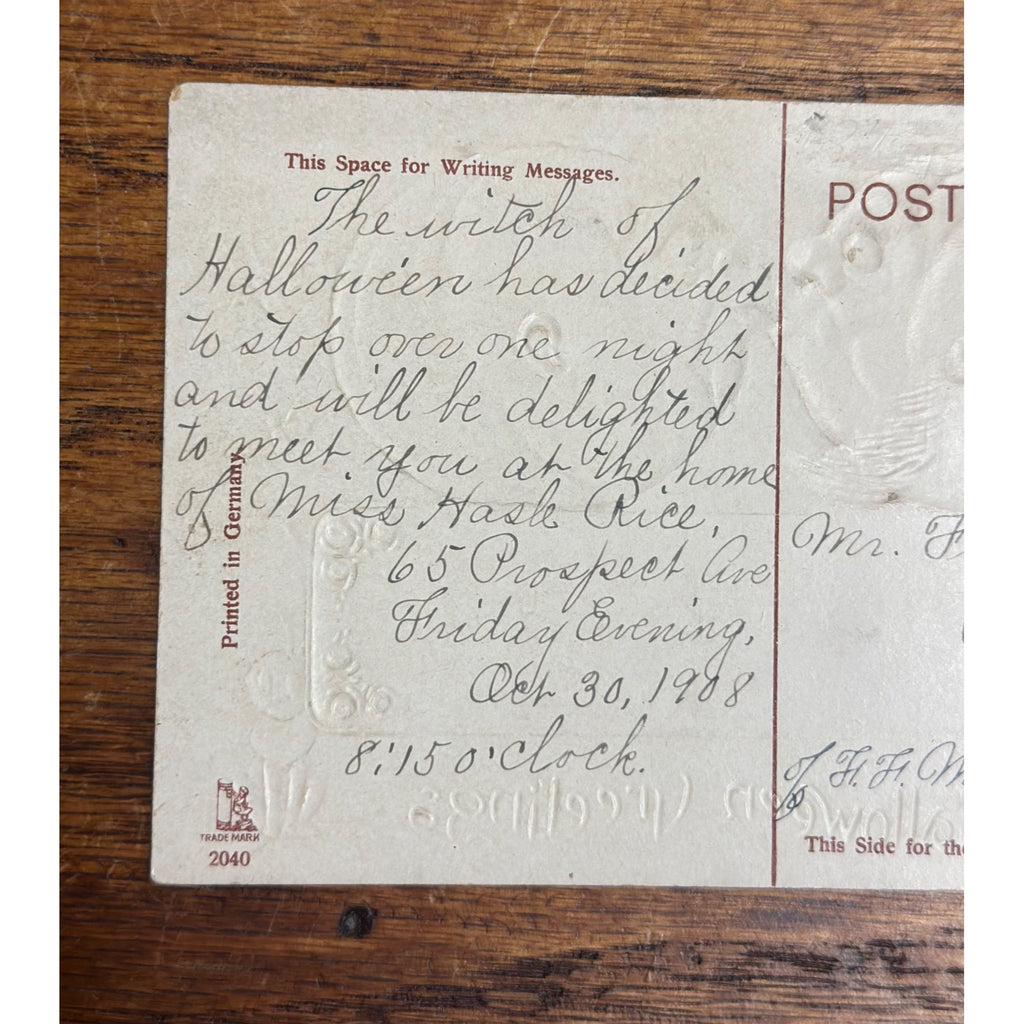 This Space for Writing Messages.
The witch of
Hallowe'en has decided
to stop over one night
and will be delighted
to meet you at the home
of Miss Hasle Rice,
65 Prospect Ave
Friday Evening,
Oct 30, 1908
8:15 o'clock.
Printed in Germany
TRADE MARK
2040
POST
Mr. F
℅ F. F. M
This Side for the
Halloween Greetings